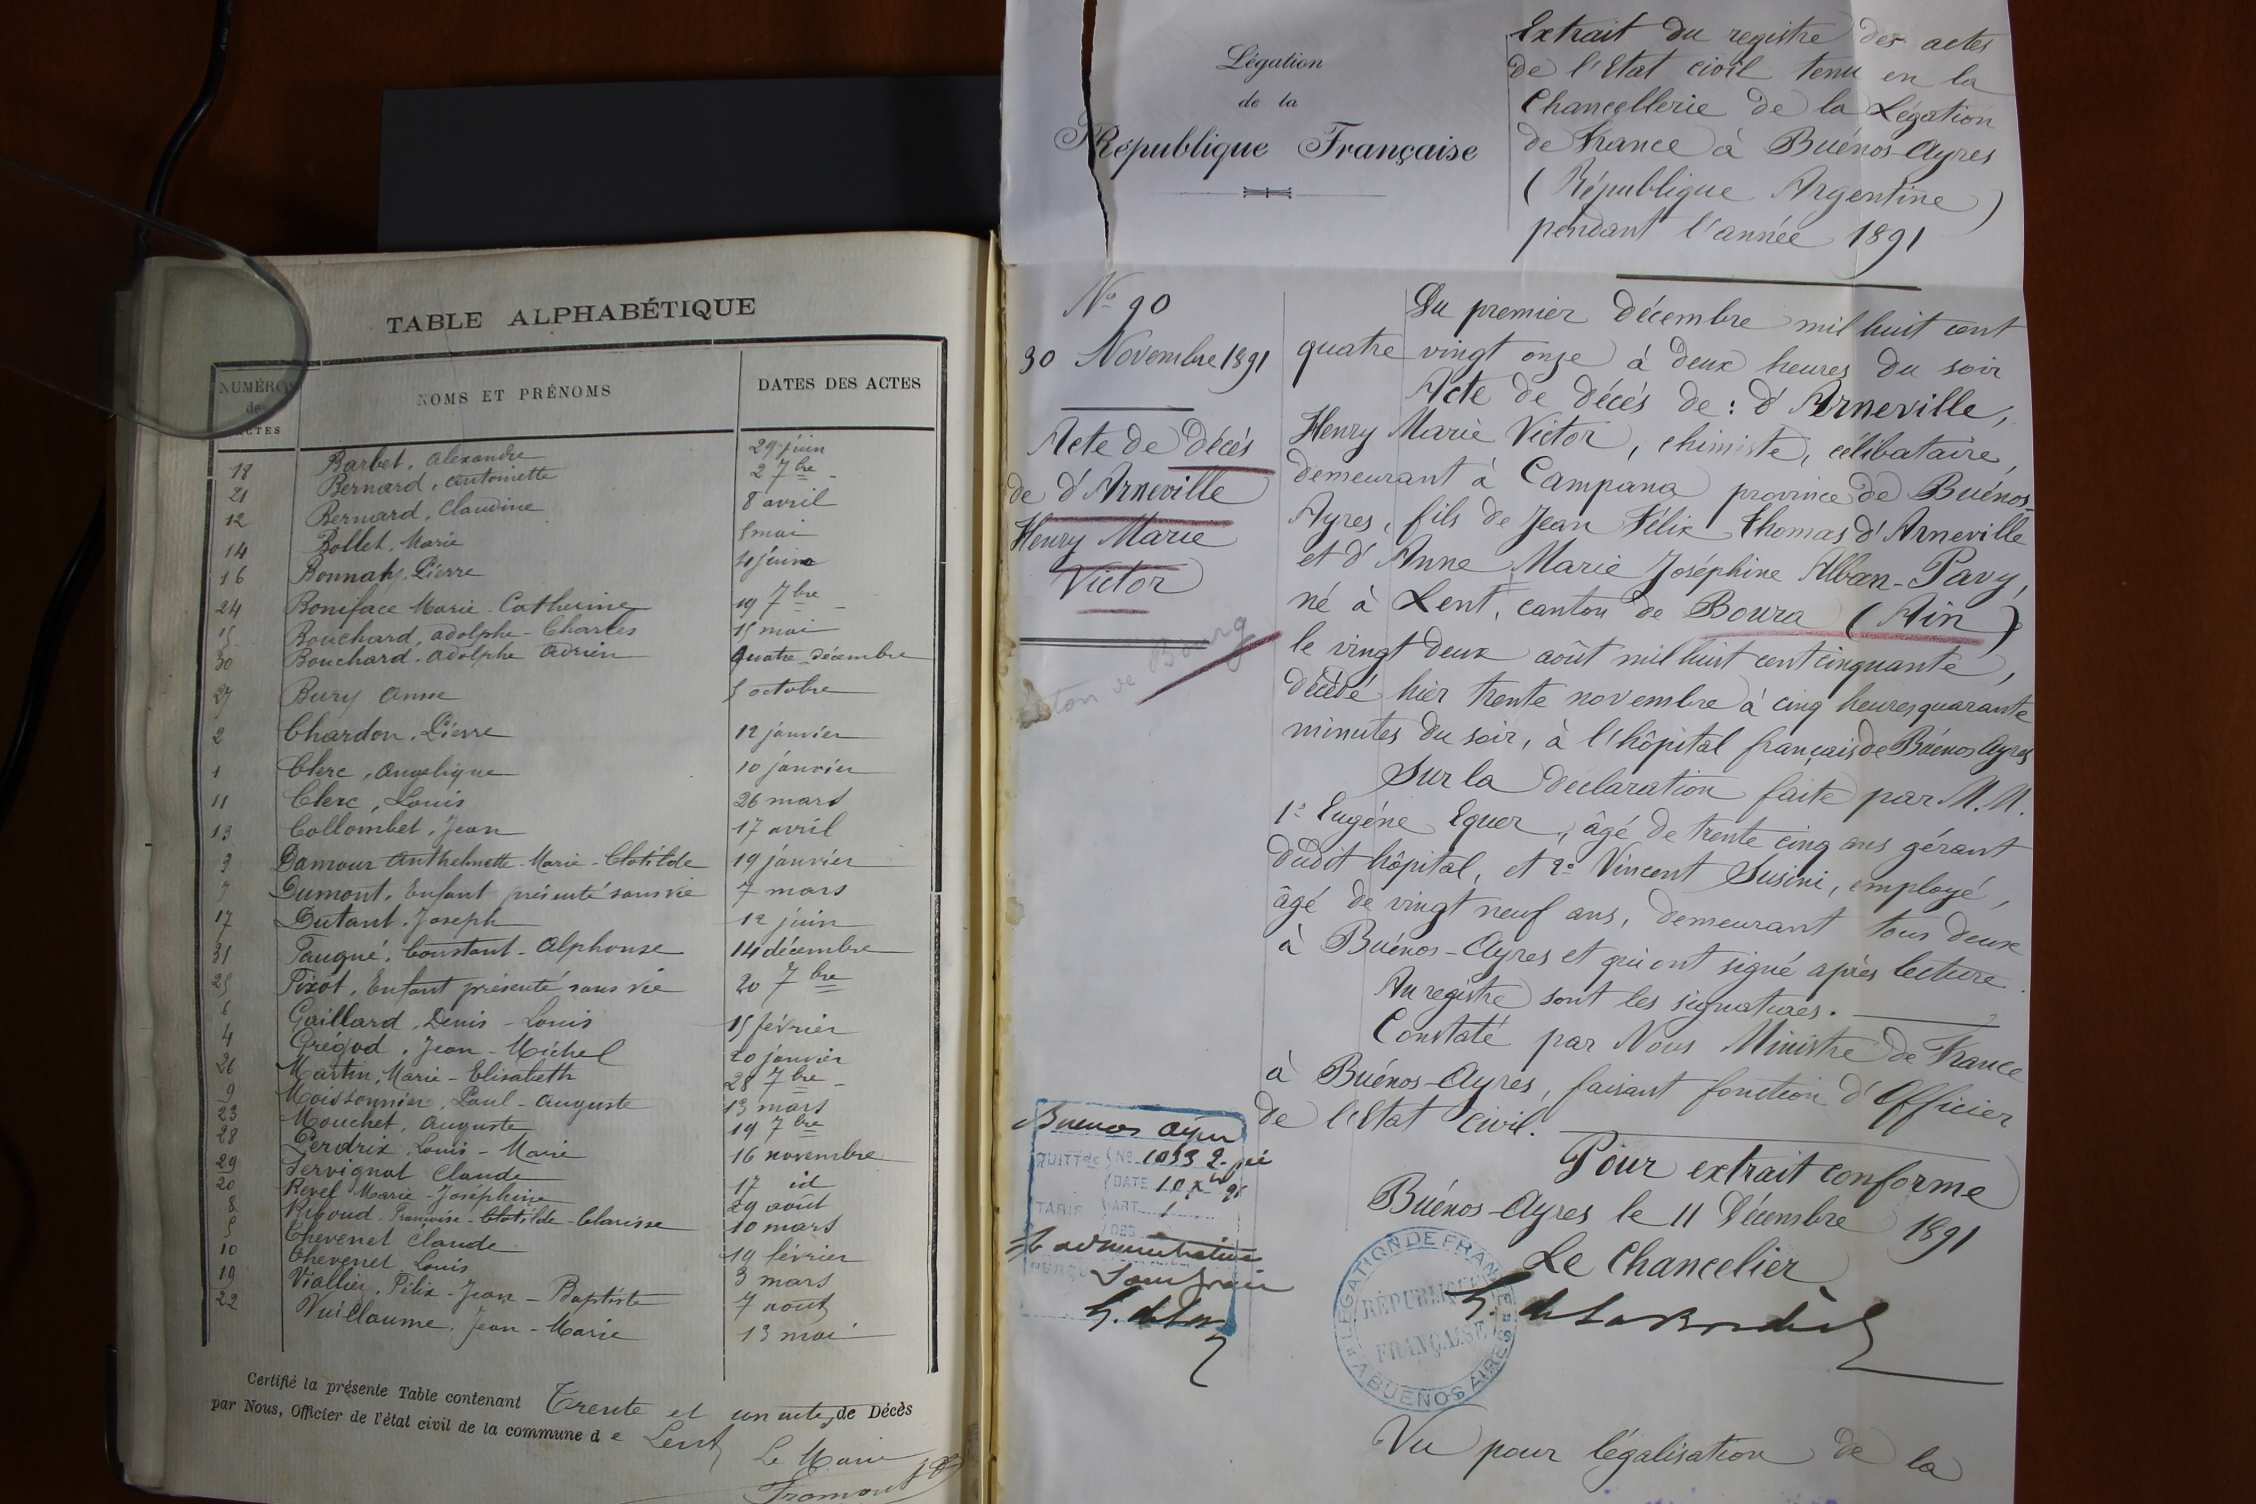 TABLE ALPHABÉTIQUE
NUMÉROS
de
ACTES
NOMS ET PRÉNOMS
DATES DES ACTES
18 Barbet, Alexandre 29 juin
21 Bernard, Antoinette 2 7bre
12 Bernard, Claudine 8 avril
14 Bollet, Marie 5 mai
16 Bonnaty, Pierre 4 juin
24 Boniface Marie-Catherine 19 7bre
15 Bouchard, Adolphe-Charles 15 mai
30 Bouchard, Adolphe Adrien quatre décembre
27 Bury Anne 5 octobre
2 Chardon, Pierre 12 janvier
1 Clerc, Angélique 10 janvier
11 Clerc, Louis 26 mars
13 Collombet, Jean 17 avril
3 Damour Anthelmette-Marie-Clotilde 19 janvier
7 Dumont, Enfant présenté sans vie 7 mars
17 Dutant, Joseph 12 juin
31 Fauqué, Constant-Alphonse 14 décembre
25 Fixot, Enfant présenté sans vie 20 7bre
6 Gaillard, Denis-Louis 15 février
4 Grégod, Jean-Michel 20 janvier
26 Martin, Marie-Elisabeth 28 7bre
9 Moissonnier, Paul-Auguste 13 mars
23 Mouchet, Auguste 19 7bre
28 Perdrix, Louis-Marie 16 novembre
29 Pervignat Claude 17 id
20 Revel Marie-Joséphine 29 août
8 Riboud-Françoise-Clotilde-Clarisse 10 mars
5 Thevenet Claude 19 février
10 Thevenet Louis 3 mars
19 Viallier, Félix-Jean-Baptiste 7 août
22 Vuillaume, Jean-Marie 13 mai
Certifié la présente Table contenant Trente et un actes de Décès
par Nous, Officier de l'état civil de la commune de Lent
Le Maire
Fromont
Légation
de la
République Française
Extrait du registre des actes
de l'Etat civil tenu en la
Chancellerie de la Légation
de France à Buénos-Ayres
(République Argentine)
pendant l'année 1891
No 90
30 Novembre 1891
Acte de décès
de d'Arneville
Henry Marie
Victor
canton de Bourg
Du premier décembre mil huit cent
quatre vingt onze à deux heures du soir
Acte de décès de : d'Arneville,
Henry Marie Victor, chimiste, célibataire,
demeurant à Campana province de Buénos-
Ayres, fils de Jean Félix Thomas d'Arneville
et d'Anne Marie Joséphine Alban-Pavy,
né à Lent, canton de Boura (Ain)
le vingt deux août mil huit cent cinquante,
décédé hier trente novembre à cinq heures quarante
minutes du soir, à l'hôpital français de Buénos Ayres
Sur la déclaration faite par M.M.
1° Eugène Equer, âgé de trente cinq ans gérant
dudit hôpital, et 2° Vincent Susini, employé,
âgé de vingt neuf ans, demeurant tous deux
à Buénos-Ayres et qui ont signé après lecture.
Au registre sont les signatures.
Constaté par Nous Ministre de France
à Buénos-Ayres, faisant fonction d'Officier
de l'Etat Civil.
Pour extrait conforme
Buénos-Ayres le 11 Décembre 1891
Le Chancelier
Buenos Ayres
QUITTce No 1033
DATE
TARIF ART. 1
LÉGATION DE FRANCE
RÉPUBLIQUE
FRANÇAISE
A BUENOS AIRES
Vu pour légalisation de la